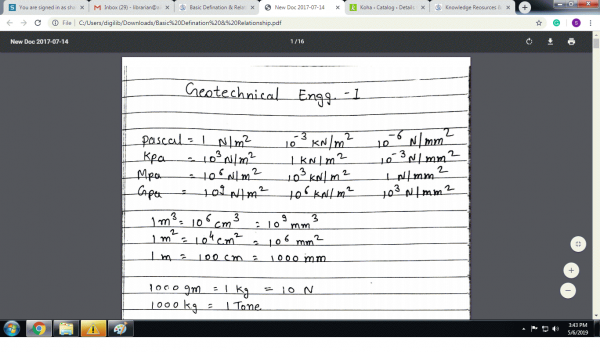 You are signed in as sh
Inbox (29) - librarian@
Basic Defination & Rela
New Doc 2017-07-14
Koha › Catalog › Details
Knowledge Resources &
File | C:/Users/digilib/Downloads/Basic%20Defination%20&%20Relationship.pdf
New Doc 2017-07-14
1 / 16
Geotechnical Engg. - I
pascal = 1 N/m2 10-3 KN/m2 10-6 N/mm2
Kpa = 103 N/m2 1 KN/m2 10-3 N/mm2
Mpa = 106 N/m2 103 KN/m2 1 N/mm2
Gpa = 109 N/m2 106 KN/m2 103 N/mm2
1 m3 = 106 cm3 = 109 mm3
1 m2 = 104 cm2 = 106 mm2
1 m = 100 cm = 1000 mm
1000 gm = 1 kg = 10 N
1000 kg = 1 Tone.
3:43 PM
5/6/2019